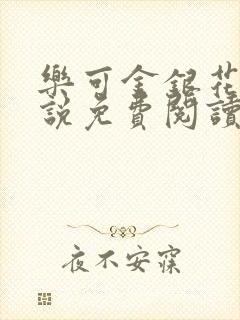 樂可金銀花
說免費閱讀
夜不安寐